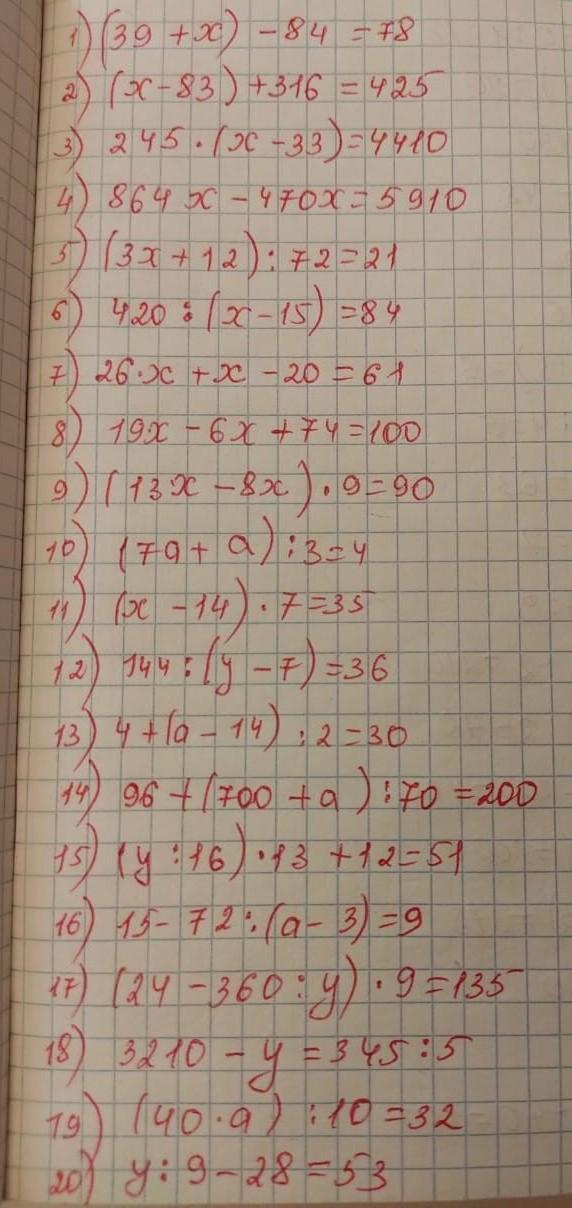 1) (39 + x) - 84 = 78
2) (x - 83) + 316 = 425
3) 245 · (x - 33) = 4410
4) 864x - 470x = 5910
5) (3x + 12) : 72 = 21
6) 420 : (x - 15) = 84
7) 26 · x + x - 20 = 61
8) 19x - 6x + 74 = 100
9) (13x - 8x) · 9 = 90
10) (7a + a) : 3 = 4
11) (x - 14) · 7 = 35
12) 144 : (y - 7) = 36
13) 4 + (a - 14) : 2 = 30
14) 96 + (700 + a) : 70 = 200
15) (y : 16) · 13 + 12 = 51
16) 15 - 72 : (a - 3) = 9
17) (24 - 360 : y) · 9 = 135
18) 3210 - y = 345 : 5
19) (40 · a) : 10 = 32
20) y : 9 - 28 = 53